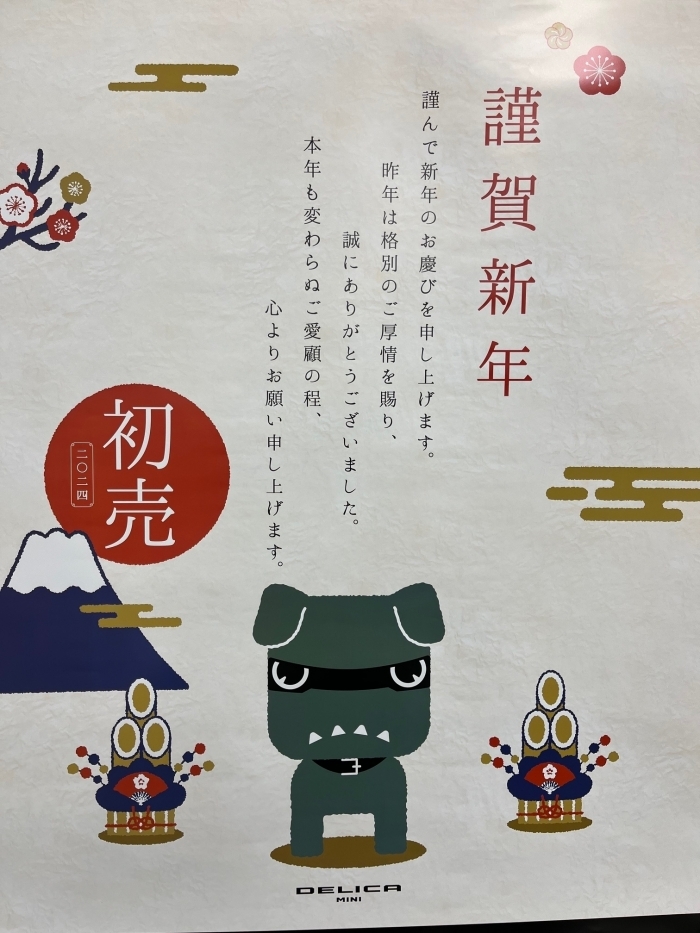 謹賀新年
謹んで新年のお慶びを申し上げます。
昨年は格別のご厚情を賜り、
誠にありがとうございました。
本年も変わらぬご愛顧の程、
心よりお願い申し上げます。
初売
二〇二四
DELICA
MINI